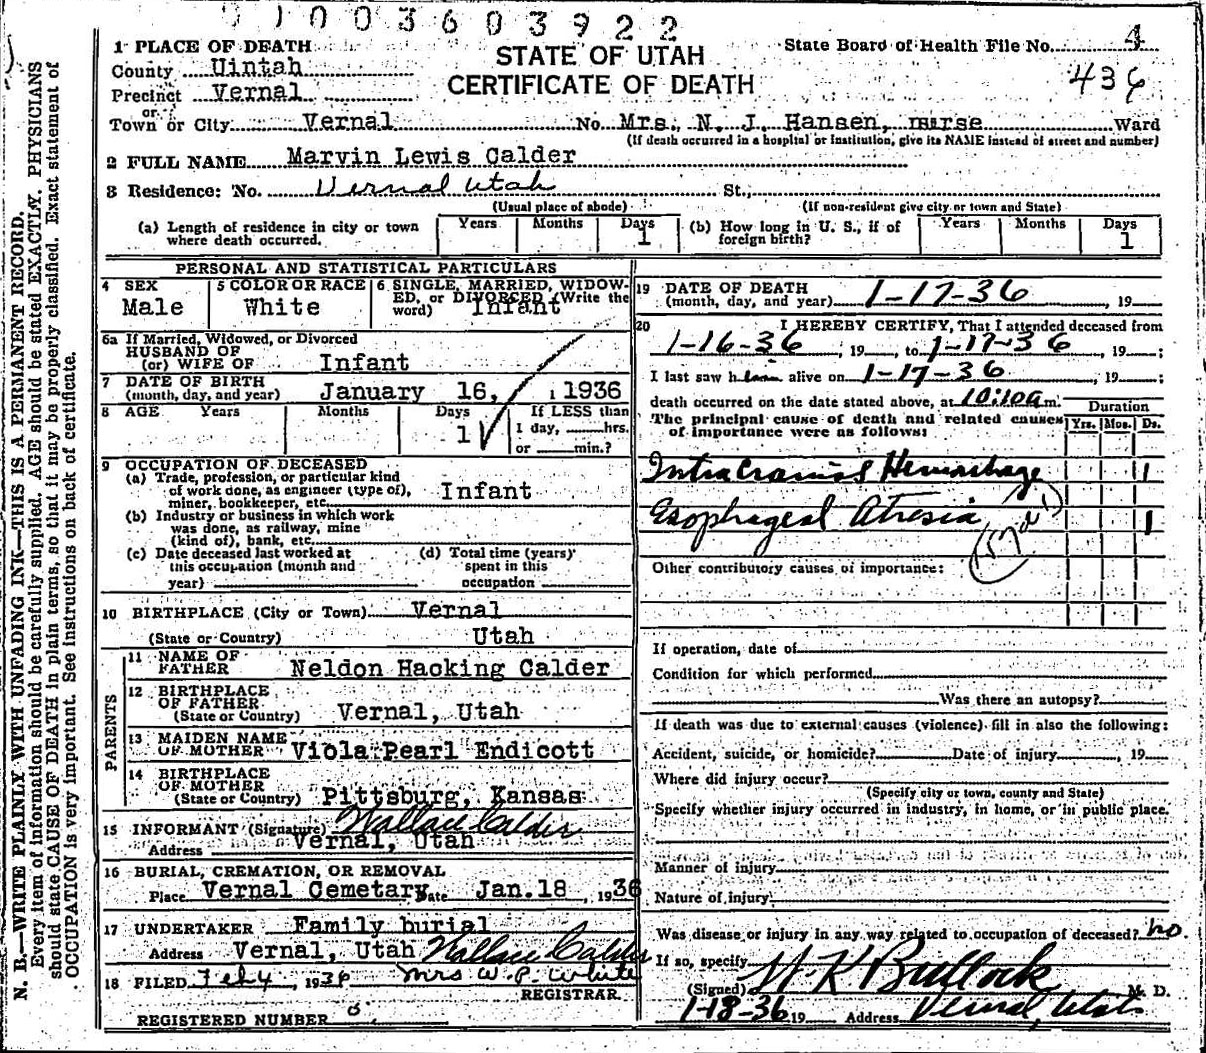 01003603922
1 PLACE OF DEATH
STATE OF UTAH
CERTIFICATE OF DEATH
State Board of Health File No. 4
436
County Uintah
Precinct Vernal
or
Town or City Vernal No. Mrs. N. J. Hansen, nurse Ward
(If death occurred in a hospital or institution, give its NAME instead of street and number)
2 FULL NAME Marvin Lewis Calder
3 Residence: No. Vernal Utah St.,
(Usual place of abode) (If non-resident give city or town and State)
(a) Length of residence in city or town where death occurred. Years Months Days 1
(b) How long in U. S., if of foreign birth? Years Months Days 1
PERSONAL AND STATISTICAL PARTICULARS
4 SEX Male
5 COLOR OR RACE White
6 SINGLE, MARRIED, WIDOWED, or DIVORCED (Write the word) Infant
6a If Married, Widowed, or Divorced
HUSBAND OF
(or) WIFE OF Infant
7 DATE OF BIRTH
(month, day, and year) January 16, 1936
8 AGE Years Months Days 1
If LESS than
1 day, hrs.
or min.?
9 OCCUPATION OF DECEASED
(a) Trade, profession, or particular kind
of work done, as engineer (type of),
miner, bookkeeper, etc. Infant
(b) Industry or business in which work
was done, as railway, mine
(kind of), bank, etc.
(c) Date deceased last worked at
this occupation (month and
year)
(d) Total time (years)
spent in this
occupation
10 BIRTHPLACE (City or Town) Vernal
(State or Country) Utah
PARENTS
11 NAME OF
FATHER Neldon Hacking Calder
12 BIRTHPLACE
OF FATHER
(State or Country) Vernal, Utah
13 MAIDEN NAME
OF MOTHER Viola Pearl Endicott
14 BIRTHPLACE
OF MOTHER
(State or Country) Pittsburg, Kansas
15 INFORMANT (Signature) Wallace Calder
Address Vernal, Utah
16 BURIAL, CREMATION, OR REMOVAL
Place Vernal Cemetary Date Jan. 18, 1936
17 UNDERTAKER Family burial
Address Vernal, Utah Wallace Calder
18 FILED Feb 4, 1936 Mrs W. P. White
REGISTRAR.
REGISTERED NUMBER
19 DATE OF DEATH
(month, day, and year) 1-17-36, 19
20 I HEREBY CERTIFY, That I attended deceased from
1-16-36, 19, to 1-17-36, 19;
I last saw him alive on 1-17-36, 19;
death occurred on the date stated above, at 10:10a m.
The principal cause of death and related causes
of importance were as follows:
Duration
Yrs. Mos. Ds.
Intracranial Hemorrhage 1
Esophageal Atresia 1
Other contributory causes of importance:
If operation, date of
Condition for which performed
Was there an autopsy?
If death was due to external causes (violence) fill in also the following:
Accident, suicide, or homicide? Date of injury, 19
Where did injury occur?
(Specify city or town, county and State)
Specify whether injury occurred in industry, in home, or in public place.
Manner of injury
Nature of injury
Was disease or injury in any way related to occupation of deceased? no.
If so, specify
(Signed) W K Bullock M. D.
1-18-36 19 Address Vernal, Utah
N. B.—WRITE PLAINLY WITH UNFADING INK—THIS IS A PERMANENT RECORD.
Every item of information should be carefully supplied. AGE should be stated EXACTLY. PHYSICIANS
should state CAUSE OF DEATH in plain terms, so that it may be properly classified. Exact statement of
OCCUPATION is very important. See instructions on back of certificate.